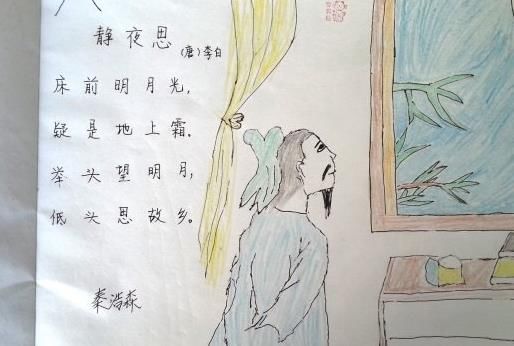 静夜思
(唐)李白
床前明月光,
疑是地上霜.
举头望明月,
低头思故乡。
秦浩森